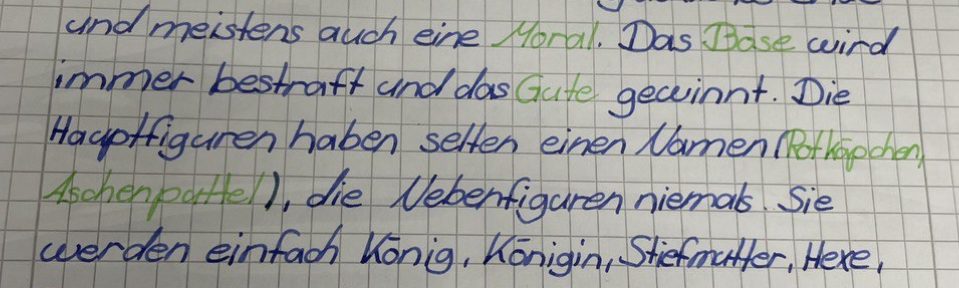 und meistens auch eine Moral. Das Böse wird
immer bestraft und das Gute gewinnt. Die
Hauptfiguren haben selten einen Namen (Rotkäpchen,
Aschenputtel), die Nebenfiguren niemals. Sie
werden einfach König, Königin, Stiefmutter, Hexe,